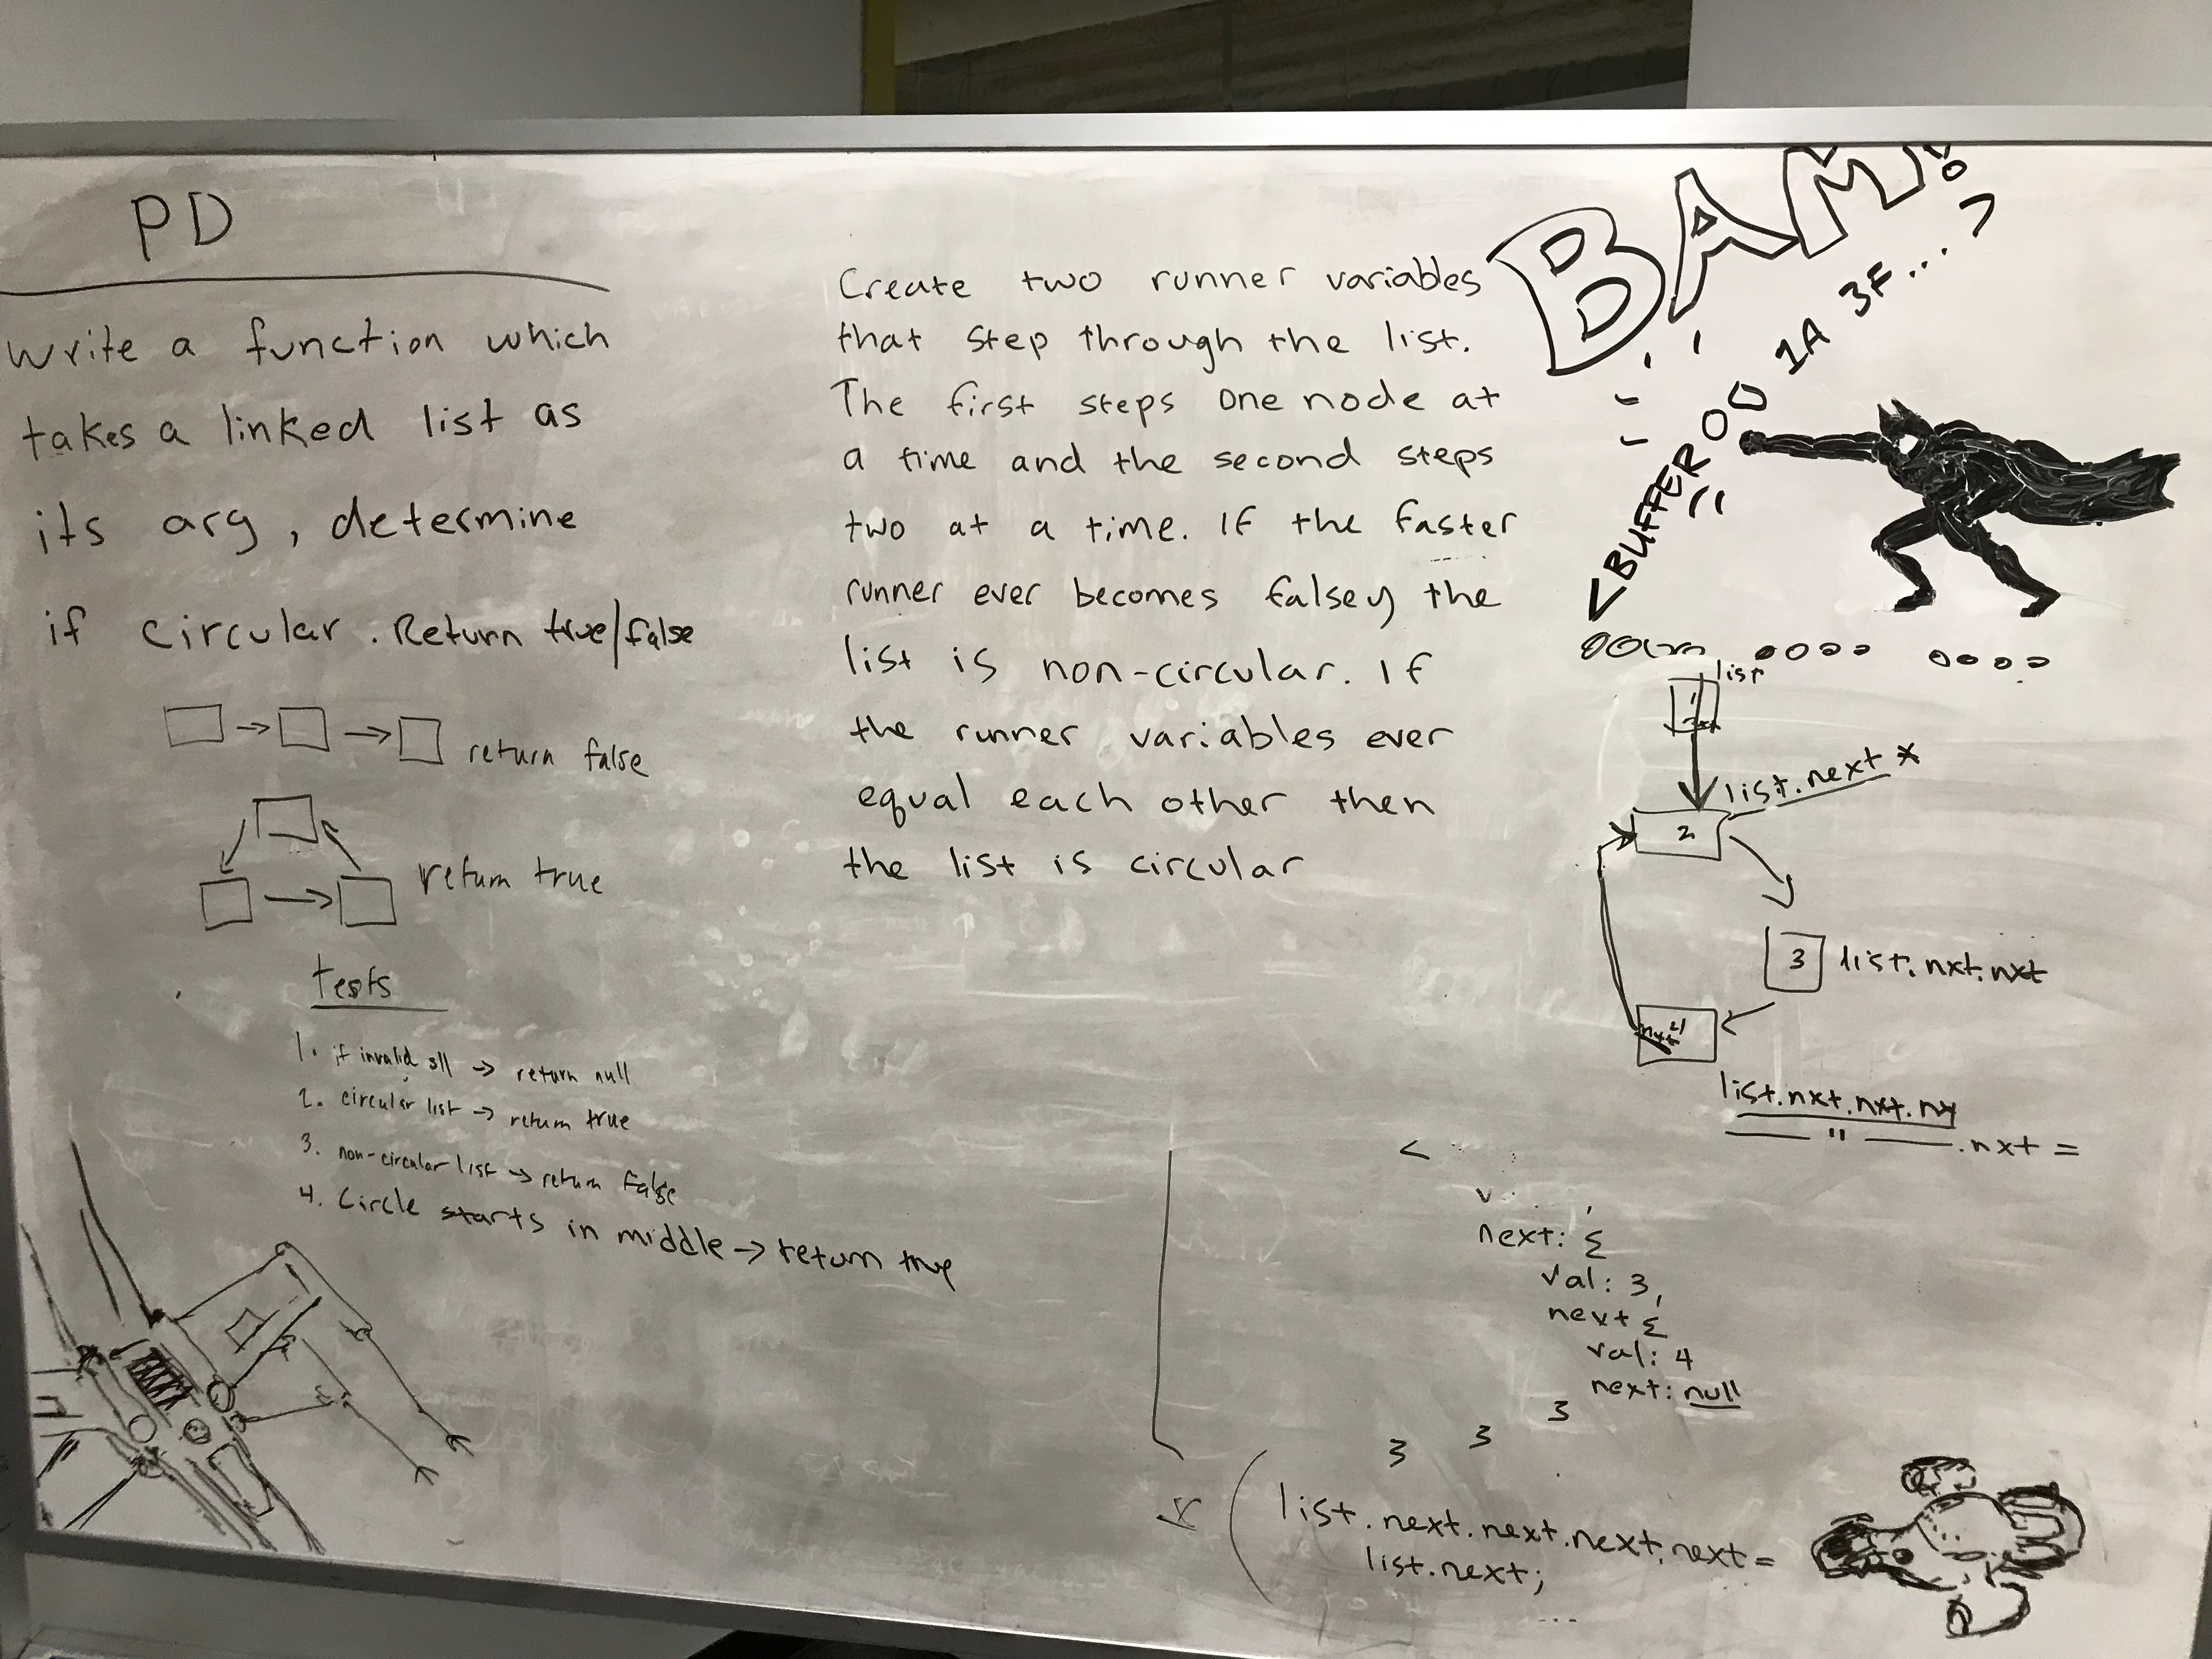 PD
Write a function which
takes a linked list as
its arg, determine
if circular. Return true/false
return false
return true
tests
1. if invalid sll → return null
2. circular list → return true
3. non-circular list → return false
4. Circle starts in middle → return true
Create two runner variables
that step through the list.
The first steps one node at
a time and the second steps
two at a time. If the faster
runner ever becomes falsey the
list is non-circular. If
the runner variables ever
equal each other then
the list is circular
BAM!
<BUFFER 00 1A 3F...>
list
1
list.next *
2
3 list.nxt.nxt
list.nxt.nxt.nx
—— " —— .nxt =
next: {
val: 3,
next {
val: 4
next: null
}
}
}
(list.next.next.next.next =
list.next;